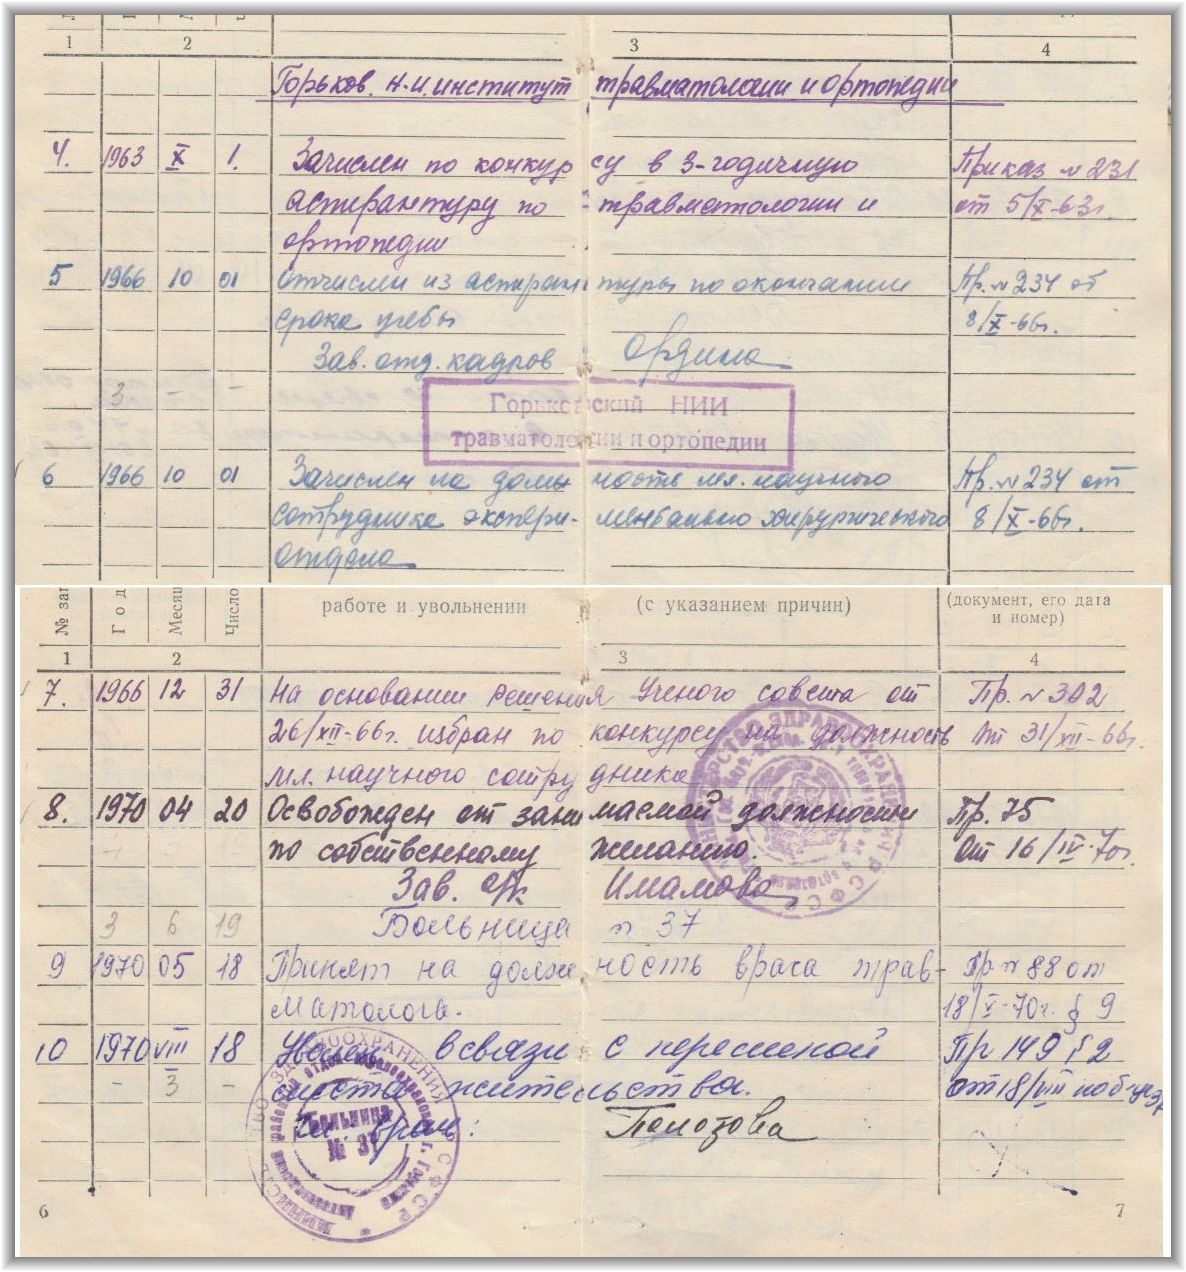 1 2 3 4
Горьков. Н.И. институт травматологии и ортопедии
4. 1963 X 1. Зачислен по конкурсу в 3-годичную Приказ № 231
аспирантуру по травматологии и от 5/X-63г.
ортопедии
5 1966 10 01 Отчислен из аспирантуры по окончании Пр. № 234 от
срока учебы 8/X-66г.
Зав. отд. кадров
3 –
Горьковский НИИ
травматологии и ортопедии
6 1966 10 01 Зачислен на должность мл. научного Пр. № 234 от
сотрудника экспери- ментально хирургического 8/X-66г.
отдела
№ зап Год Месяц Число работе и увольнении (с указанием причин) (документ, его дата
и номер)
1 2 3 4
7. 1966 12 31 На основании решения Ученого совета от Пр. № 302
26/XII-66г. избран по конкурсу на должность от 31/XII-66г.
мл. научного сотрудника
8. 1970 04 20 Освобожден от занимаемой должности Пр. 75
по собственному желанию. От 16/IV-70г.
Зав. о/к Имамова
3 6 19 Больница № 37
9 1970 05 18 Принят на должность врача трав- Пр № 88 от
матолога. 18/V-70г. § 9
10 1970 VIII 18 Уволен в связи с переменой Пр 149 § 2
– 3 – места жительства. от 18/VIII
Гл врач:
Больница
6 7